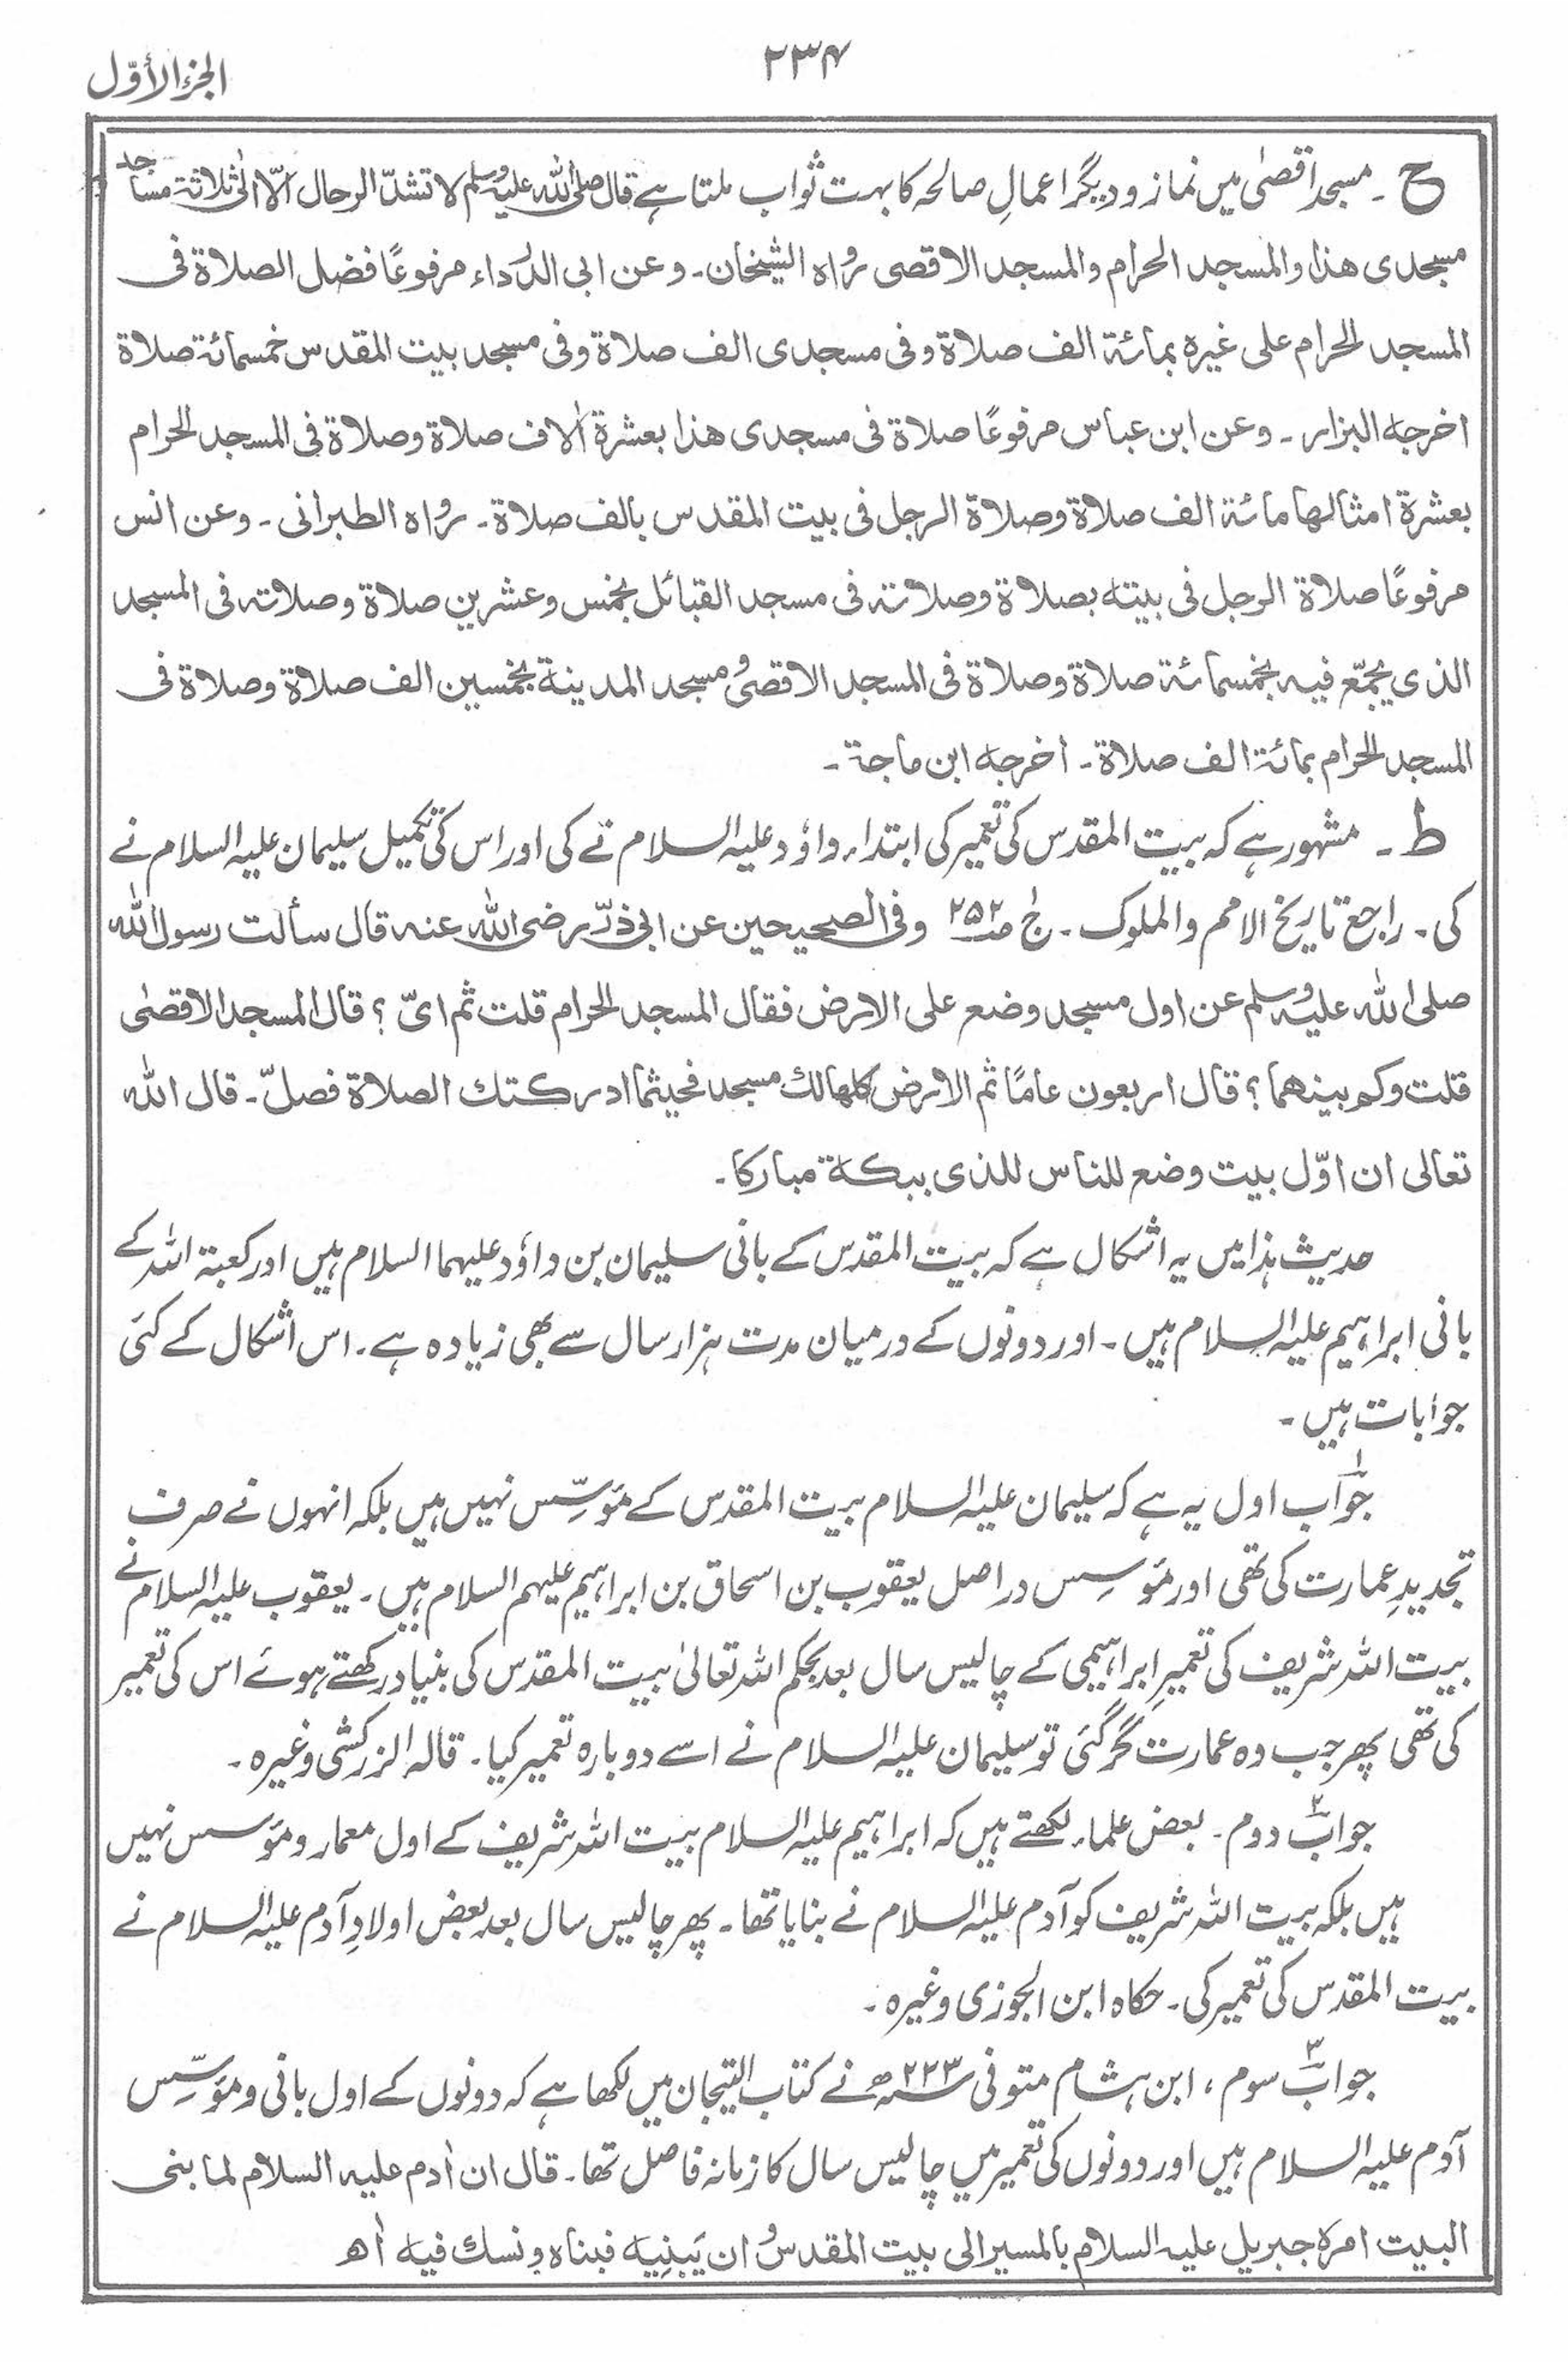 ۲۳۴
الجزء الأوّل
ح ۔ مسجد اقصیٰ میں نماز و دیگر اعمالِ صالحہ کا بہت ثواب ملتا ہے قال صلی اللہ علیہ وسلم لا تشدّ الرحال الّا الیٰ ثلاثۃ مساجد
مسجدی ھذا والمسجد الحرام والمسجد الاقصی رواہ الشیخان۔ وعن ابی الدرداء مرفوعًا فضل الصلاۃ فی
المسجد الحرام علی غیرہ بمائۃ الف صلاۃ وفی مسجدی الف صلاۃ وفی مسجد بیت المقدس خمسمائۃ صلاۃ
اخرجہ البزار۔ وعن ابن عباس مرفوعًا صلاۃ فی مسجدی ھذا بعشرۃ اٰلاف صلاۃ وصلاۃ فی المسجد الحرام
بعشرۃ امثالھا مائۃ الف صلاۃ وصلاۃ الرجل فی بیت المقدس بالف صلاۃ۔ رواہ الطبرانی۔ وعن انس
مرفوعًا صلاۃ الرجل فی بیتہ بصلاۃ وصلاتہ فی مسجد القبائل بخمس وعشرین صلاۃ وصلاتہ فی المسجد
الذی یجمّع فیہ بخمسمائۃ صلاۃ وصلاۃ فی المسجد الاقصیٰ و مسجد المدینۃ بخمسین الف صلاۃ وصلاۃ فی
المسجد الحرام بمائۃ الف صلاۃ۔ اخرجہ ابن ماجۃ۔
ط ۔ مشہور ہے کہ بیت المقدس کی تعمیر کی ابتداء داؤد علیہ السلام نے کی اور اس کی تکمیل سلیمان علیہ السلام نے
کی۔ راجع تاریخ الامم والملوک۔ ج۱ ص۲۵۲ وفی الصحیحین عن ابی ذرّ رضی اللہ عنہ قال سألت رسول اللہ
صلی اللہ علیہ وسلم عن اول مسجد وضع علی الارض فقال المسجد الحرام قلت ثم ایّ ؟ قال المسجد الاقصیٰ
قلت وکم بینھما ؟ قال اربعون عامًا ثم الارض کلھا لک مسجد فحیثما ادرکتک الصلاۃ فصلّ۔ قال اللہ
تعالی ان اوّل بیت وضع للناس للذی ببکۃ مبارکا۔
حدیث ہذا میں یہ اشکال ہے کہ بیت المقدس کے بانی سلیمان بن داؤد علیہما السلام ہیں اور کعبۃ اللہ کے
بانی ابراہیم علیہ السلام ہیں۔ اور دونوں کے درمیان مدت ہزار سال سے بھی زیادہ ہے۔ اس اشکال کے کئی
جوابات ہیں۔
جواب۱ اول یہ ہے کہ سلیمان علیہ السلام بیت المقدس کے مؤسِّس نہیں ہیں بلکہ انہوں نے صرف
تجدیدِ عمارت کی تھی اور مؤسِس دراصل یعقوب بن اسحاق بن ابراہیم علیہم السلام ہیں۔ یعقوب علیہ السلام نے
بیت اللہ شریف کی تعمیرِ ابراہیمی کے چالیس سال بعد بحکم اللہ تعالیٰ بیت المقدس کی بنیاد رکھتے ہوئے اس کی تعمیر
کی تھی پھر جب وہ عمارت گر گئی تو سلیمان علیہ السلام نے اسے دوبارہ تعمیر کیا۔ قالہ الزرکشی وغیرہ۔
جواب۲ دوم۔ بعض علماء لکھتے ہیں کہ ابراہیم علیہ السلام بیت اللہ شریف کے اول معمار و مؤسس نہیں
ہیں بلکہ بیت اللہ شریف کو آدم علیہ السلام نے بنایا تھا۔ پھر چالیس سال بعد بعض اولادِ آدم علیہ السلام نے
بیت المقدس کی تعمیر کی۔ حکاہ ابن الجوزی وغیرہ۔
جواب۳ سوم، ابن ہشام متوفی ۲۲۳ھ نے کتاب التیجان میں لکھا ہے کہ دونوں کے اول بانی و مؤسِّس
آدم علیہ السلام ہیں اور دونوں کی تعمیر میں چالیس سال کا زمانہ فاصل تھا۔ قال ان اٰدم علیہ السلام لما بنی
البیت امرہ جبریل علیہ السلام بالمسیر الی بیت المقدس و ان یَبْنِیہ فبناہ و نسک فیہ اٰھ